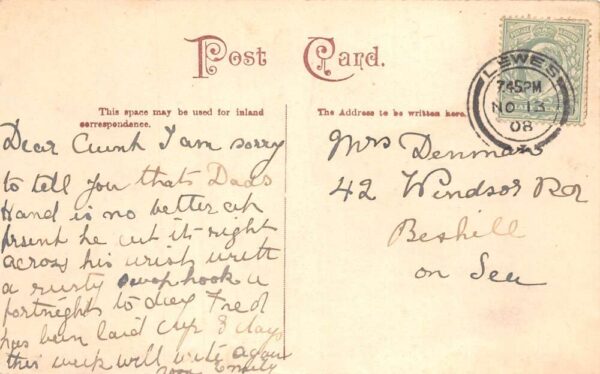 Post Card.
This space may be used for inland
correspondence.
The Address to be written here.
LEWES
7.45PM
NO 13
08
Dear Aunt I am sorry
to tell you thats Dads
Hand is no better at
prsent he cut it right
across his wrist with
a rusty swop hook a
fortnights to day Fred
has been laid up 3 days
this week will write again
Emily
Mrs Denman
42 Windsor Rd
Bexhill
on Sea